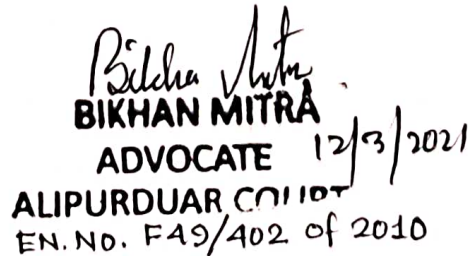 Bikha Mitra
BIKHAN MITRA
ADVOCATE 12/3/2021
ALIPURDUAR COURT
EN. NO. F49/402 of 2010